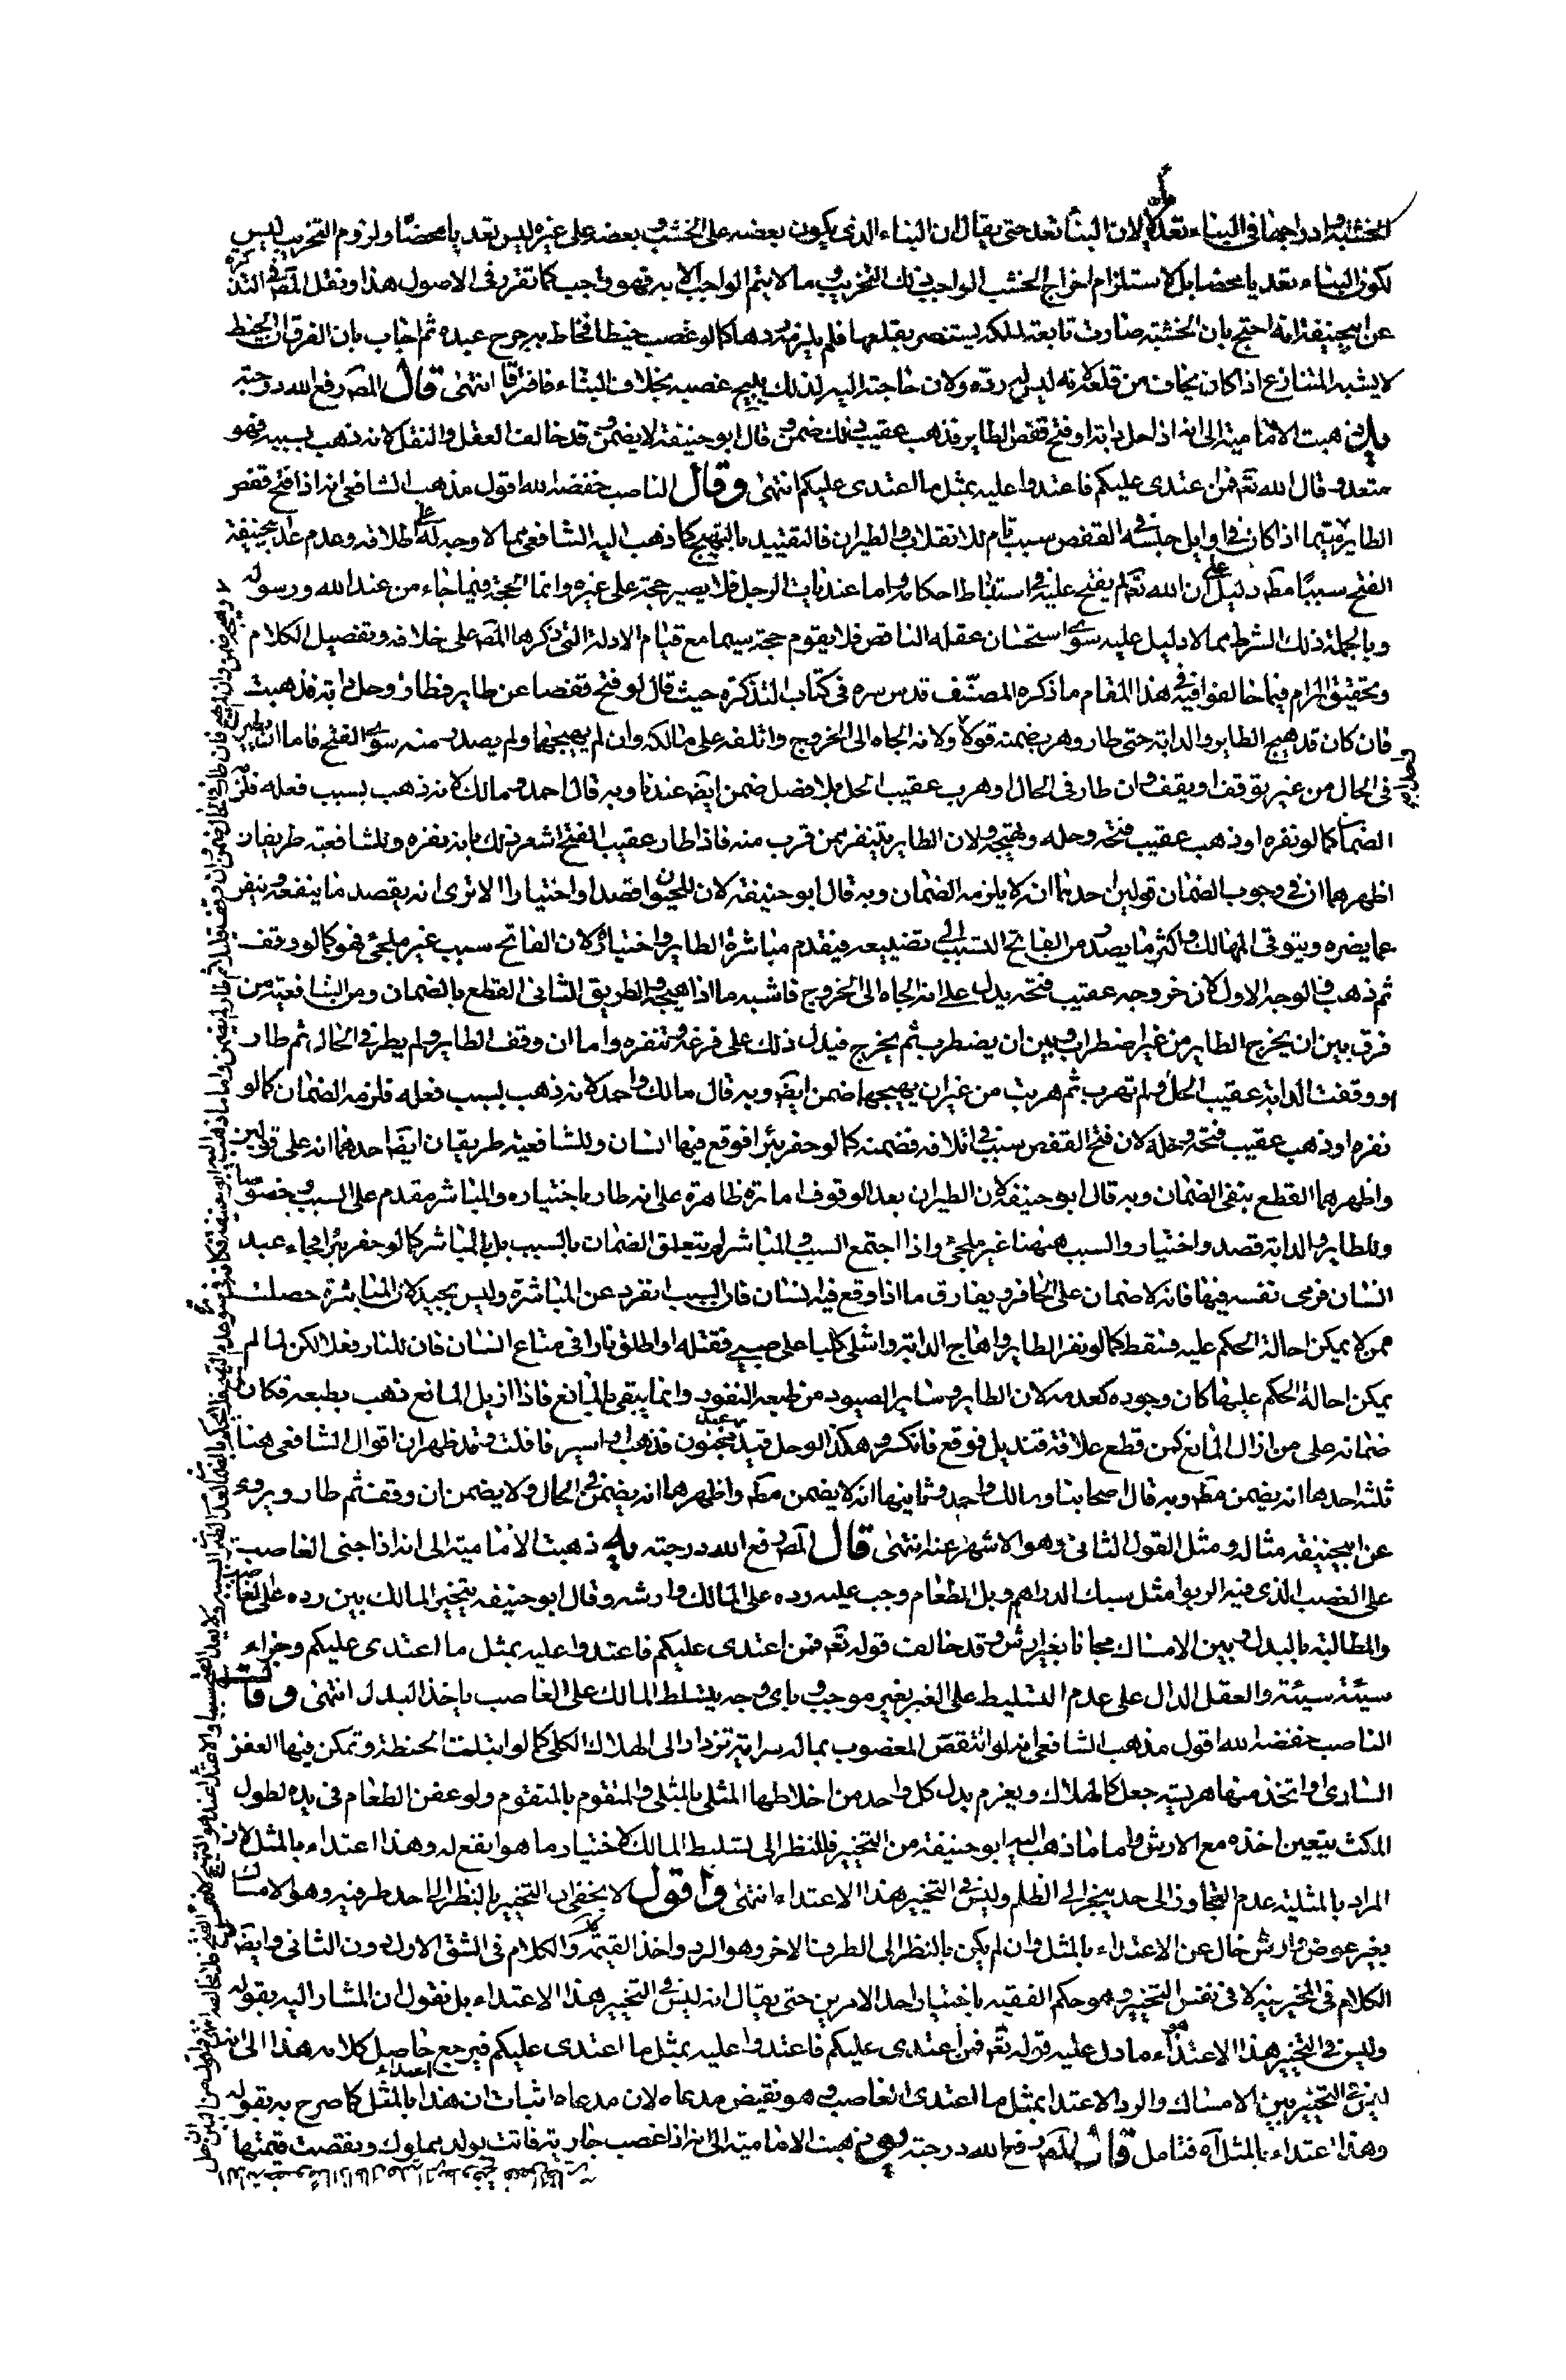 الخشبة وادراجها فى البناء تعد لا لان البناء تعد حتى يقال ان البناء الذى يكون بعضه على الخشب وبعضه على غيره ليس تعديا محضا ولزوم التخريب ليس
لكون البناء تعديا محضا بل لاستلزام اخراج الخشب الواجب ذلك التخريب وما لا يتم الواجب الا به فهو واجب كما تقرر فى الاصول هذا ونقل المص فى التذكرة
عن ابيحنيفة انه احتج بان الخشبة صارت تابعة لملكه يستضر بقلعها فلم يلزم ردها كما لو غصب خيطا فخاط به جرح عبده ثم اجاب بان الفرق ان الخيط
لا يشبه المتنازع اذا كان يخاف من قلعه لانه ليس له رده ولان حاجته اليه لذلك يبيح غصبه بخلاف البناء فافترقا انتهى قال المص رفع الله درجته
يد ذهبت الامامية الى انه اذا حل دابة او فتح قفص الطاير فذهب عقيب ذلك ضمن وقال ابو حنيفة لا يضمن وقد خالف العقل والنقل لانه ذهب بسببه فهو
متعد وقال الله تع فمن اعتدى عليكم فاعتدوا عليه بمثل ما اعتدى عليكم انتهى وقال الناصب خفضه الله اقول مذهب الشافعى انه اذا فتح قفص
الطاير سيما اذا كان فى اوايل حبسه فى القفص سبب تام للانفلات والطيران فالتقييد بالتهييج كما ذهب اليه الشافعى مما لا وجه له على اطلاقه وعدم عد ابيحنيفة
الفتح سببا مط دليل على ان الله تع لم يفتح عليه فى استنباط احكامه واما عند ذات الرجل فلا يصير حجة على غيره وانما الحجة فيما جاء من عند الله ورسوله
وبالجملة ذلك الشرط مما لا دليل عليه سوى استحسان عقله الناقص فلا يقوم حجة سيما مع قيام الادلة التى ذكرها المص على خلافه وتفصيل الكلام
وتحقيق المرام فيما خالفوا فيه فى هذا المقام ما ذكره المصنف قدس سره فى كتاب التذكرة حيث قال لو فتح قفصا عن طاير فطار او حل دابة فذهبت
فان كان قد هيج الطاير والدابة حتى طار وهرب ضمنه قولا ولانه الجاه الى الخروج واتلفه على مالكه وان لم يهيجها ولم يصدر منه سوى الفتح فاما ان يطير
فى الحال من غير توقف او يقف وان طار فى الحال او هرب عقيب الحل بلا فصل ضمن ايض عندنا وبه قال احمد ومالك لانه ذهب بسبب فعله فلزمه
الضمان كما لو نفره او ذهب عقيب فتحه وحله وتهييجه ولان الطاير يتنفر ممن قرب منه فاذا طار عقيب الفتح اشعر ذلك بانه نفره وللشافعية طريقان
اظهرهما ان فى وجوب الضمان قولين احدهما انه لا يلزمه الضمان وبه قال ابو حنيفة لان للحيوان قصدا واختيارا الا ترى انه يقصد ما ينفعه وينفر
عما يضره ويتوقى المهالك واكثر ما يصدر من الفاتح التسبب الى تضييعه فيقدم مباشرة الطاير واختياره ولان الفاتح سبب غير ملجئ فهو كما لو وقف
ثم ذهب والوجه الاول لان خروجه عقيب فتحه يدل على انه الجاه الى الخروج فاشبه ما اذا هيجه والطريق الثانى القطع بالضمان ومن الشافعية من
فرق بين ان يخرج الطاير من غير اضطراب وبين ان يضطرب ثم يخرج فيدل ذلك على فزعه وتنفره واما ان وقف الطاير ولم يطر فى الحال ثم طار
او وقفت الدابة عقيب الحل ولم تهرب ثم هربت من غير ان يهيجها ضمن ايض وبه قال مالك واحمد لانه ذهب بسبب فعله فلزمه الضمان كما لو
نفره او ذهب عقيب فتحه وحله لان فتح القفص سبب فى اتلافه فضمنه كما لو حفر بئرا فوقع فيها انسان وللشافعية طريقان ايض احدهما انه على قولين
واظهرهما القطع بنفى الضمان وبه قال ابو حنيفة لان الطيران بعد الوقوف امارة ظاهرة على انه طار باختياره والمباشر مقدم على السبب خصوصا
وللطاير والدابة قصد واختيار والسبب هيهنا غير ملجئ واذا اجتمع السبب والمباشر لم يتعلق الضمان بالسبب بل بالمباشر كما لو حفر بئرا فجاء عبد
انسان فرمى نفسه فيها فانه لا ضمان على الحافر ويفارق ما اذا وقع فيه انسان فان السبب انفرد عن المباشرة وليس بجيد لان المباشرة حصلت
ممن لا يمكن احالة الحكم عليه فسقط كما لو نفر الطاير واهاج الدابة واشلى كلبا على صبى فقتله او اطلق نارا فى متاع انسان فان للنار فعلا لكن لما لم
يمكن احالة الحكم عليها كان وجوده كعدمه لان الطاير وساير الصيود من طبعه النفور وانما يبقى بالمانع فاذا ازيل المانع ذهب بطبعه فكان
ضمانه على من ازال المانع كمن قطع علاقة قنديل فوقع فانكسر وهكذا لو حل قيد عبد مجنون فذهب او اسير فافلت وقد ظهر ان اقوال الشافعى هنا
ثلثة احدها انه يضمن مط وبه قال اصحابنا ومالك واحمد وثانيها انه لا يضمن مط واظهرها انه يضمن فى الحال ولا يضمن ان وقف ثم طار ويروى
عن ابيحنيفة مثاله ومثل القول الثانى وهو الاشهر عنه انتهى قال المص رفع الله درجته يه ذهبت الامامية الى انه اذا جنى الغاصب
على الغصب الذى فيه الربوا مثل سبك الدراهم وبل الطعام وجب عليه رده على المالك وارشه وقال ابو حنيفة يتخير المالك بين رده على الغاصب
والمطالبة بالبدل وبين الامساك مجانا بغير ارش وقد خالف قوله تع فمن اعتدى عليكم فاعتدوا عليه بمثل ما اعتدى عليكم وجزاء
سيئة سيئة والعقل الدال على عدم التسليط على الغير بغير موجب وباى وجه يتسلط المالك على الغاصب باخذ البدل انتهى وقال
الناصب خفضه الله اقول مذهب الشافعى انه لو انتقص المغصوب بماله سراية تزداد الى الهلاك الكلى كما لو ابتلت الحنطة وتمكن فيها العفن
السارى او اتخذ منها هريسة جعل كالهلاك ويغرم بدل كل واحد من اخلاطها المثلى بالمثلى والمتقوم بالمتقوم ولو عفن الطعام فى يده لطول
المكث يتعين اخذه مع الارش واما ما ذهب اليه ابو حنيفة من التخيير فللنظر الى تسليط المالك لاختيار ما هو انفع له وهذا اعتداء بالمثل لان
المراد بالمثلية عدم التجاوز الى حد ينجر الى الظلم وليس فى التخيير هذا الاعتداء انتهى واقول لا يخفى ان التخيير بالنظر الى احد طرفيه وهو الامساك
بغير عوض وارش خال عن الاعتداء بالمثل وان لم يكن بالنظر الى الطرف الاخر وهو الرد واخذ القيمة كذلك والكلام فى الشق الاول دون الثانى وايض
الكلام فى المخير فيه لا فى نفس التخيير وهو حكم الفقيه باختيار احد الامرين حتى يقال انه ليس فى التخيير هذا الاعتداء بل نقول ان المشار اليه بقوله
وليس فى التخيير هذا الاعتداء هو ما دل عليه قوله تع فمن اعتدى عليكم فاعتدوا عليه بمثل ما اعتدى عليكم فيرجع حاصل كلامه هذا الى انه
ليس فى التخيير بين الامساك والرد الاعتداء بمثل ما اعتدى الغاصب وهو نقيض مدعاه لان مدعاه اثبات ان هذا اعتداء بالمثل كما صرح به بقوله
وهذا اعتداء بالمثل اه فتامل قال المص رفع الله درجته يو ذهبت الامامية الى انه اذا غصب جارية فاتت بولد مملوك ونقصت قيمتها